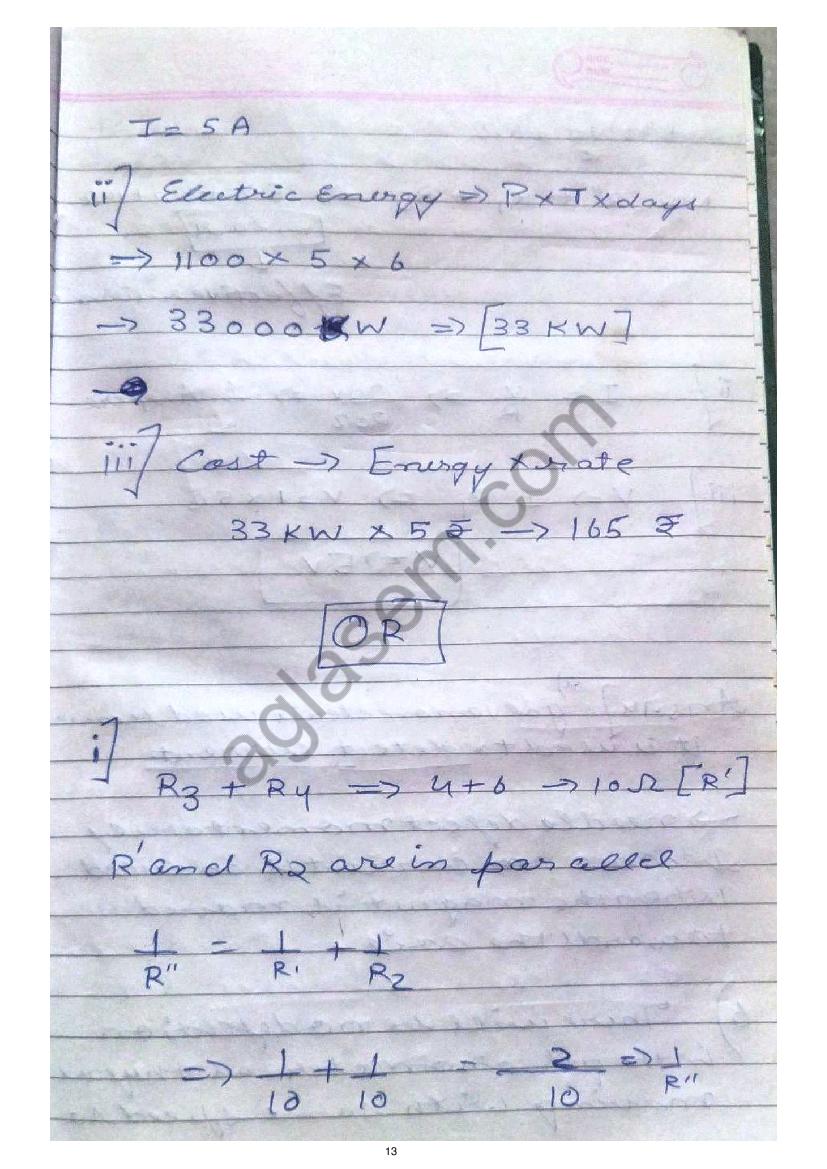 I = 5 A
ii] Electric Energy => P x T x days
=> 1100 x 5 x 6
-> 33000 W => [33 KW]
iii] Cost -> Energy x rate
33 KW x 5 ₹ -> 165 ₹
OR
aglasem.com
i]
R3 + R4 => 4+6 -> 10Ω [R']
R' and R2 are in parallel
1/R'' = 1/R' + 1/R2
=> 1/10 + 1/10 = 2/10 => 1/R''
13